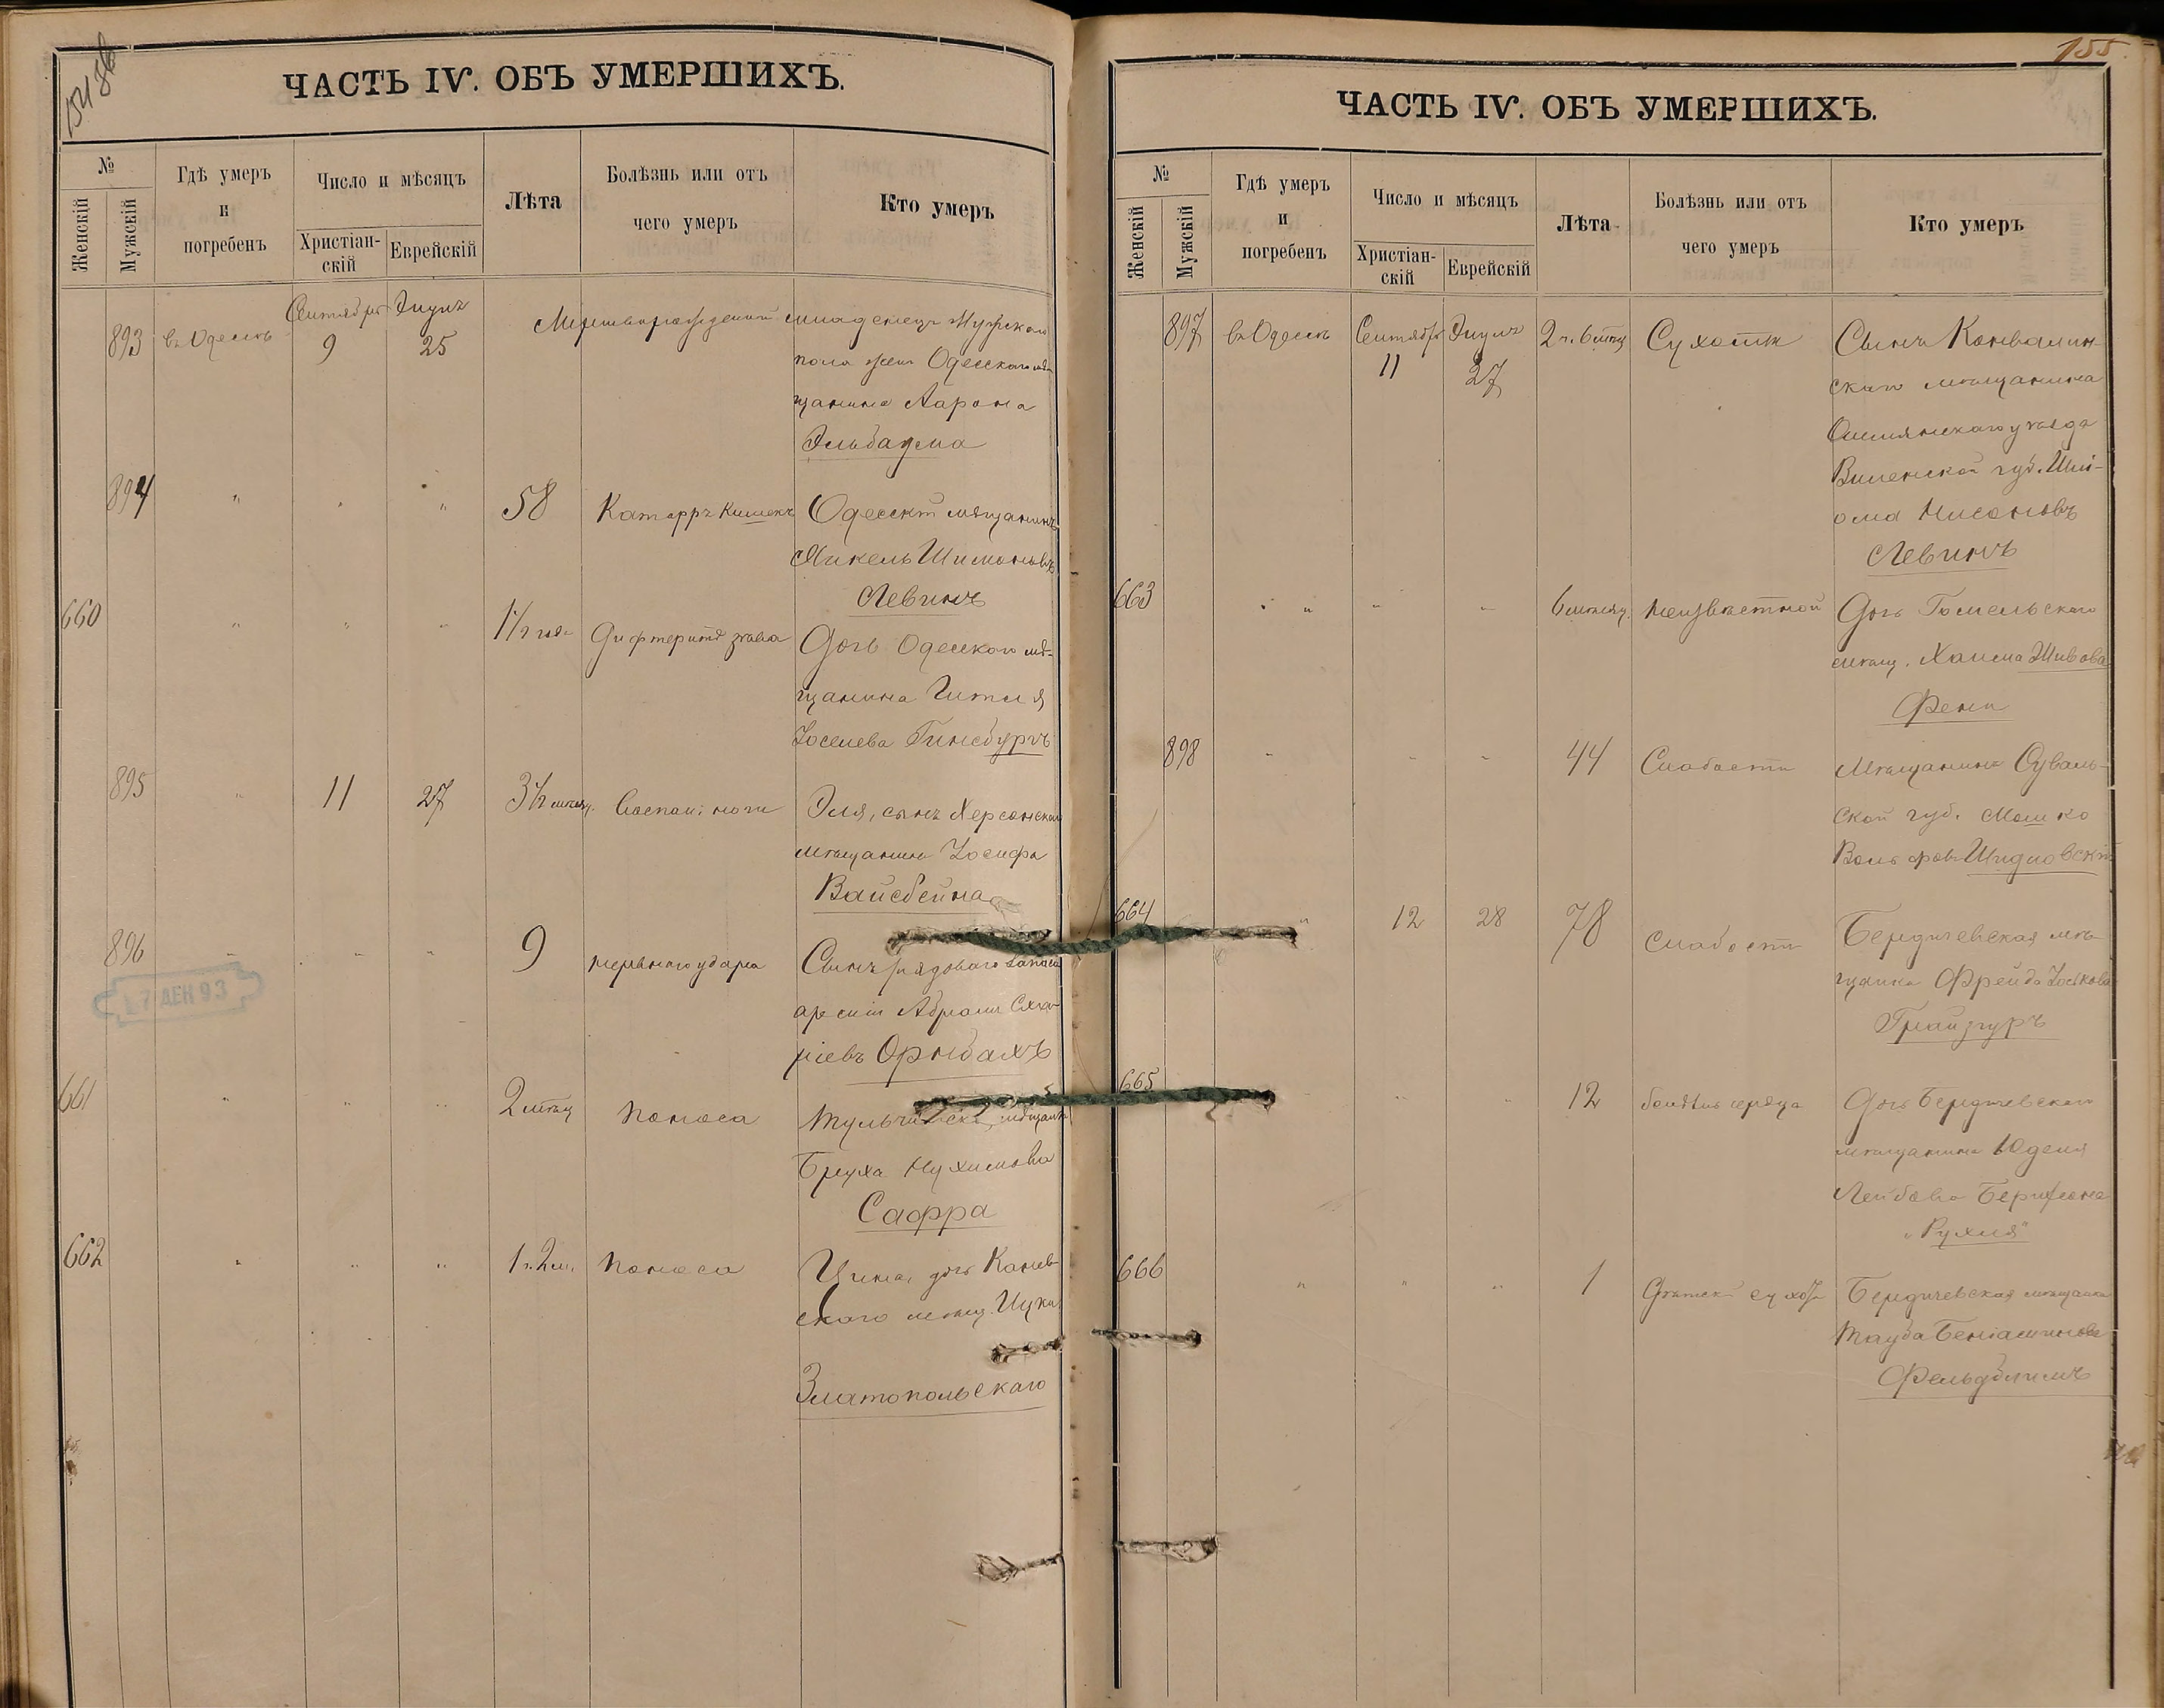 ЧАСТЬ IV. ОБЪ УМЕРШИХЪ.
№
Женскій
Мужскій
Гдѣ умеръ
и
погребенъ
Число и мѣсяцъ
Христіан-
скій
Еврейскій
Лѣта
Болѣзнь или отъ
чего умеръ
Кто умеръ
893 въ Одессѣ Сентября 9 Элулъ 25 Мертворожденный младенецъ мужскаго
пола Одесскаго мѣ-
щанина Аарона
Эльбаума
894 " " " 58 Катарръ кишекъ Одесскій мѣщанинъ
Янкель Шимоновъ
Левинъ
660 " " " 1½ Дифтеритъ зѣва Дочь Одесскаго мѣ-
щанина Гитля
Іоселева Гинсбургъ
895 " 11 27 3½ мѣсяц. Эля, сынъ Херсонскаго
мѣщанина Іосифа
Вайсбейна
896 " " " 9 нервнаго удара Сынъ рядоваго запаса
арміи Абрамъ
17 ДЕК 93
661 " " " 2 мѣсяц поноса мѣщанка
Бруха Нухимова
Сафра
662 " " " 1 г. 2 м. поноса дочь Канев-
скаго мѣщ. Ицка
Златопольскаго
155
ЧАСТЬ IV. ОБЪ УМЕРШИХЪ.
№
Женскій
Мужскій
Гдѣ умеръ
и
погребенъ
Число и мѣсяцъ
Христіан-
скій
Еврейскій
Лѣта
Болѣзнь или отъ
чего умеръ
Кто умеръ
897 въ Одессѣ Сентября 11 Элулъ 27 2 г. 6 мѣсяц Сухотки Сынъ
скаго мѣщанина
Ошмянскаго уѣзда
Виленской губ. Шлі-
ома Нисановъ
Левинъ
663 " " " 6 мѣсяц. неизвѣстной Дочь Гомельскаго
мѣщ. Хаима Шивова
Фени
898 " " " 44 Слабости Мѣщанинъ Суваль-
ской губ. Мошко
Вольфовъ Шидловскій
664 " 12 28 78 слабости Бердичевская мѣ-
щанка Фрейда Іоськова
Грайзгуръ
665 " " " 12 болѣзнь сердца Дочь Бердичевскаго
мѣщанина Юделя
Лейбова
„Рухля"
666 " " " 1 Бердичевская мѣщанка
Тауба Беніаминова
Фельдблюмъ